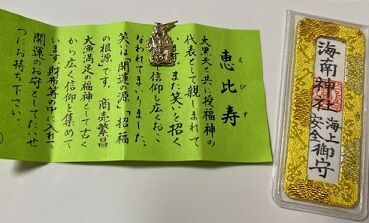 恵比寿
えびす
大黒天と共に授福神の
代表として親しまれて
また笑を招く
信仰も広くおこ
なわれてまいりました。
笑は開運の源、招福
の根源です。商売繁昌
大漁満足の福神として古く
から広く信仰を集めて
ます。財布等の中に入れて
開運のお守としてたいせ
つにお持ち下さい。
海南神社
海上
安全
御守